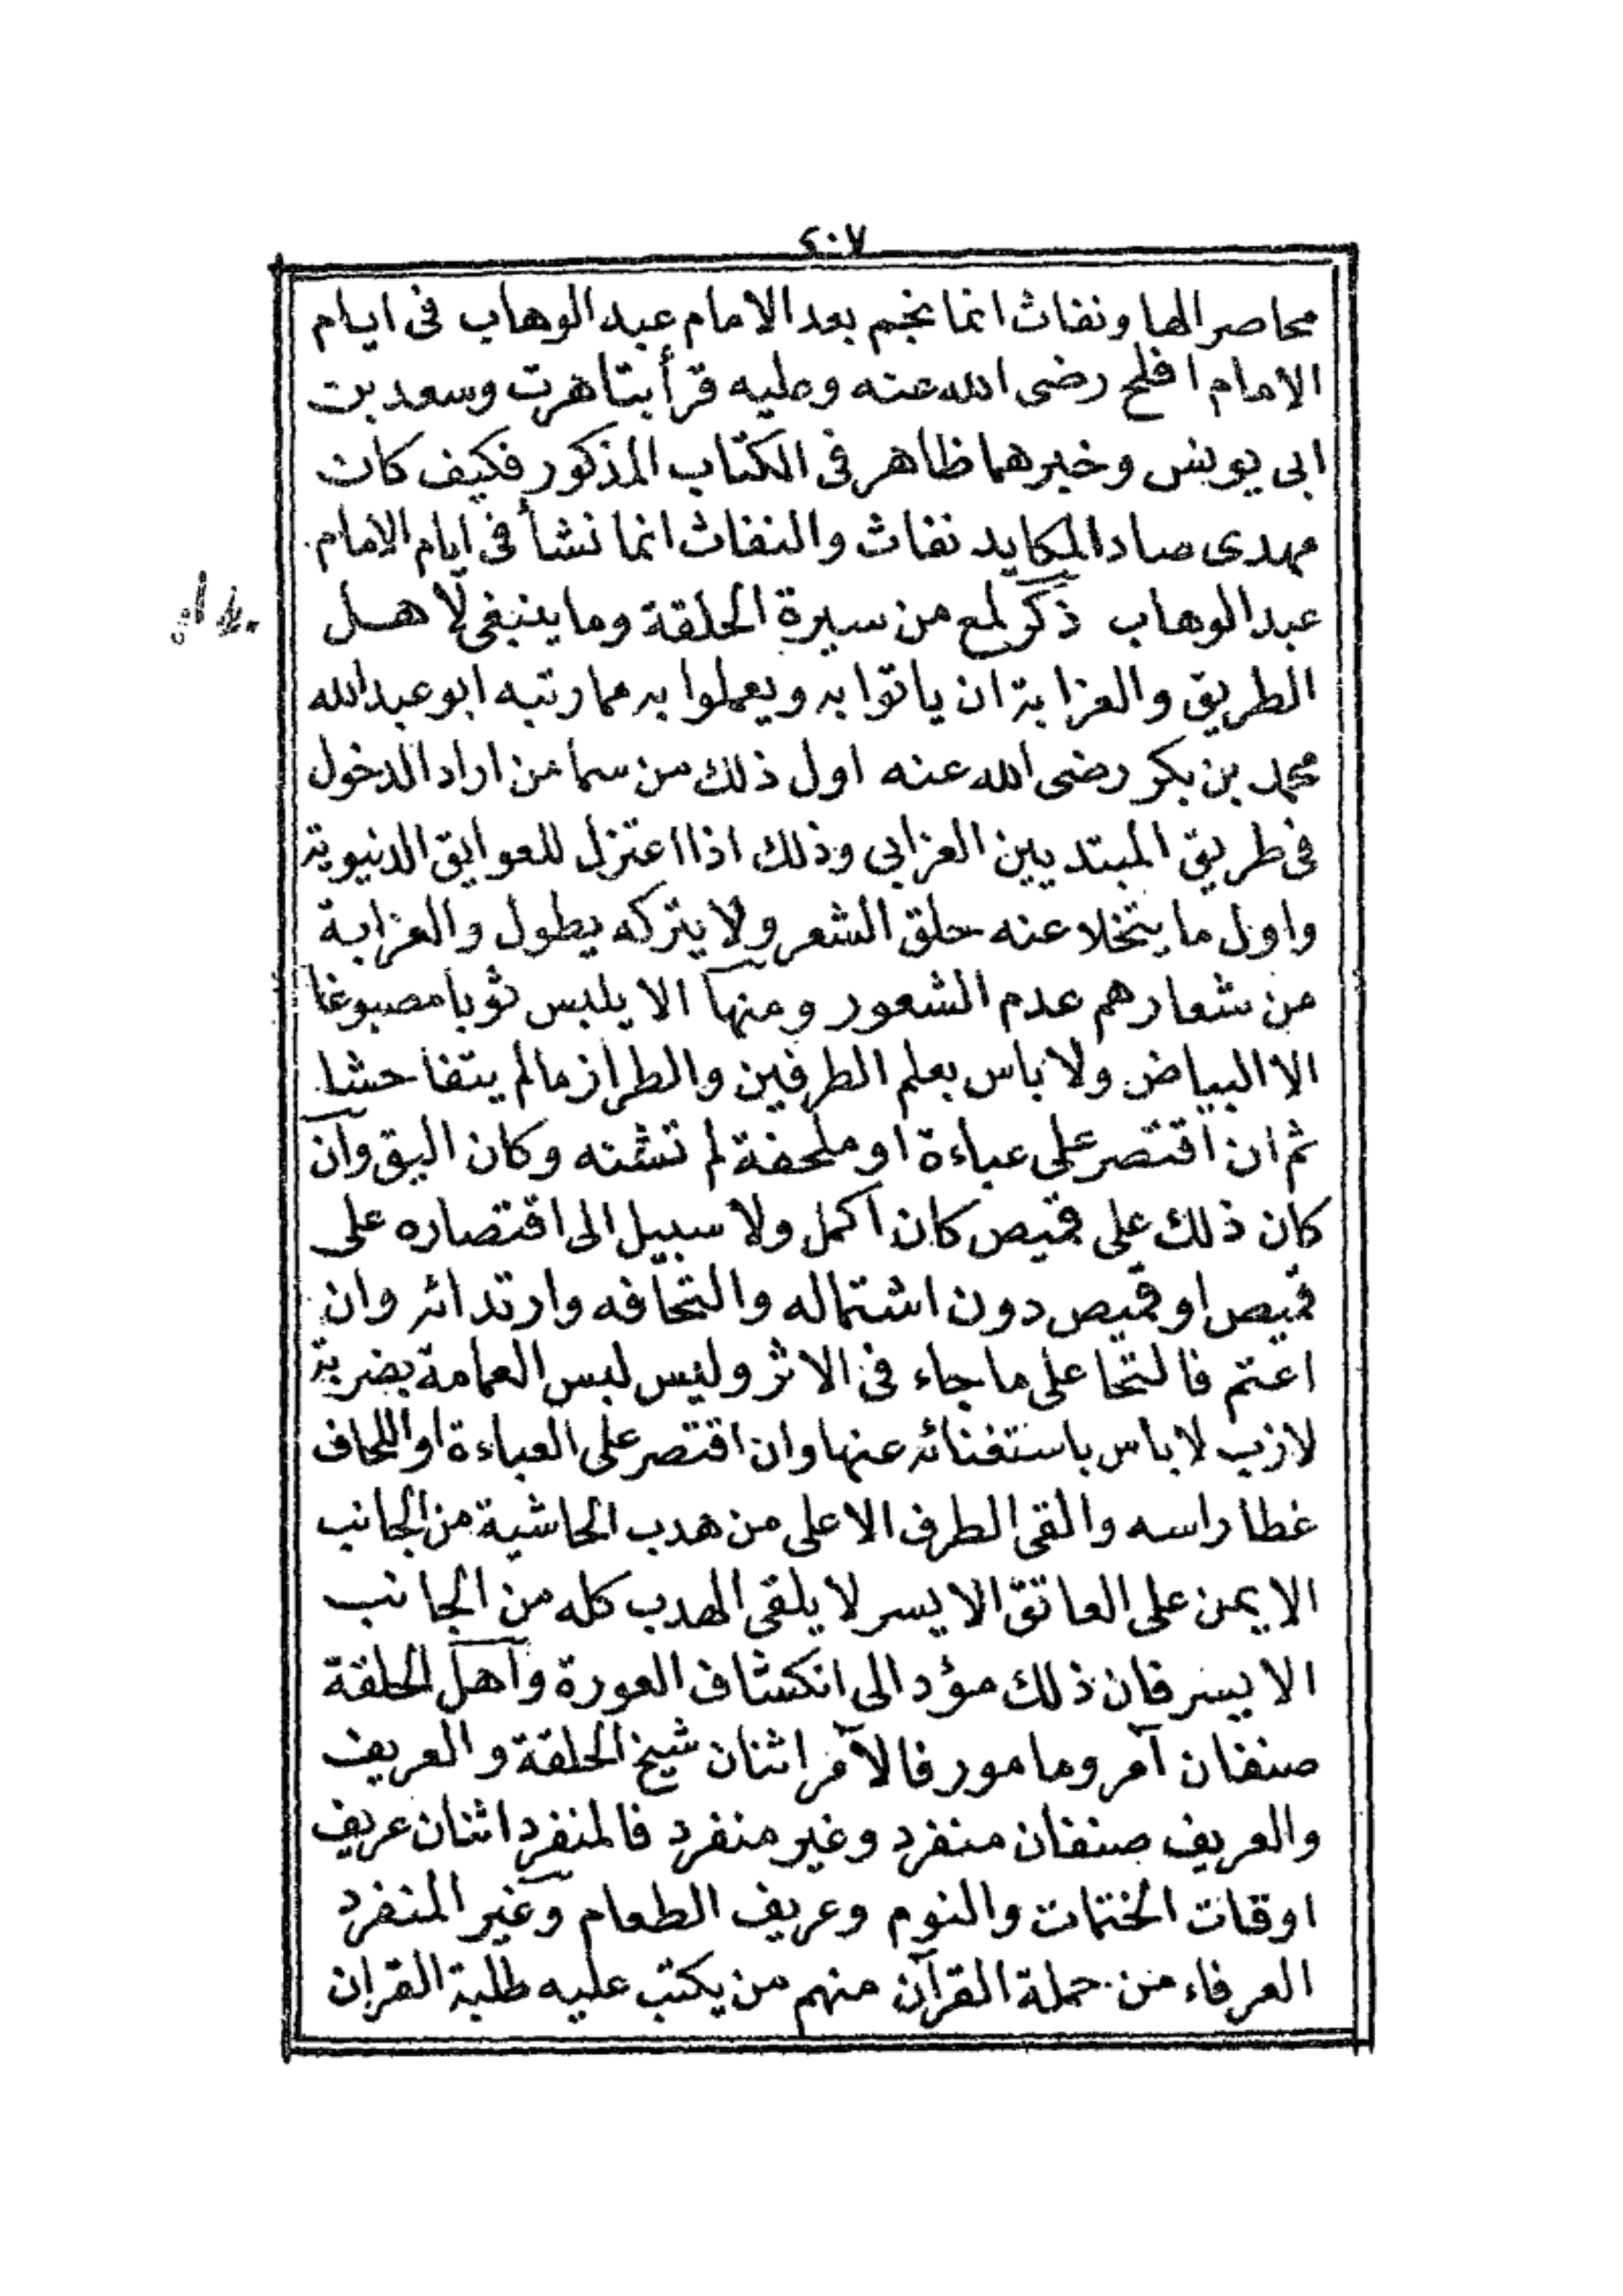 ٤٠٧
محاصرا لها ونفاث انما نجم بعد الامام عبد الوهاب فى ايام
الامام افلح رضى الله عنه وعليه قرأ بتاهرت وسعد بن
ابى يونس وخبرهما ظاهر فى الكتاب المذكور فكيف كان
مهدى صاد المكايد نفاث والنفاث انما نشأ فى ايام الامام
عبد الوهاب ذكر لمع من سيرة الحلقة وما ينبغى لاهل
الطريق والعزابة ان ياتوا به ويعملوا به مما رتبه ابو عبد الله
محمد بن بكر رضى الله عنه اول ذلك من سما من اراد الدخول
فى طريق المبتديين العزابى وذلك اذا اعتزل للعوايق الدنيوية
واول ما يتخلا عنه حلق الشعر ولا يتركه يطول والعزابة
من شعارهم عدم الشعور ومنها الا يلبس ثوبا مصبوغا
الا البياض ولا باس بعلم الطرفين والطراز مالم يتفاحشا
ثم ان اقتصر على عباءة او ملحفة لم تشنه وكان اليق وان
كان ذلك على قميص كان اكمل ولا سبيل الى اقتصاره على
قميص او قميص دون اشتماله والتحافه وارتدائه وان
اعتم فالتحا على ما جاء فى الاثر وليس لبس العمامة بضربة
لازب لا باس باستغنائه عنها وان اقتصر على العباءة او اللحاف
غطا راسه والقى الطرف الاعلى من هدب الحاشية من الجانب
الايمن على العاتق الايسر لا يلقى الهدب كله من الجانب
الايسر فان ذلك مؤد الى انكشاف العورة واهل الحلقة
صنفان آمر ومامور فالآمر اثنان شيخ الحلقة والعريف
والعريف صنفان منفرد وغير منفرد فالمنفرد اثنان عريف
اوقات الختمات والنوم وعريف الطعام وغير المنفرد
العرفاء من حملة القرآن منهم من يكتب عليه طلبة القران